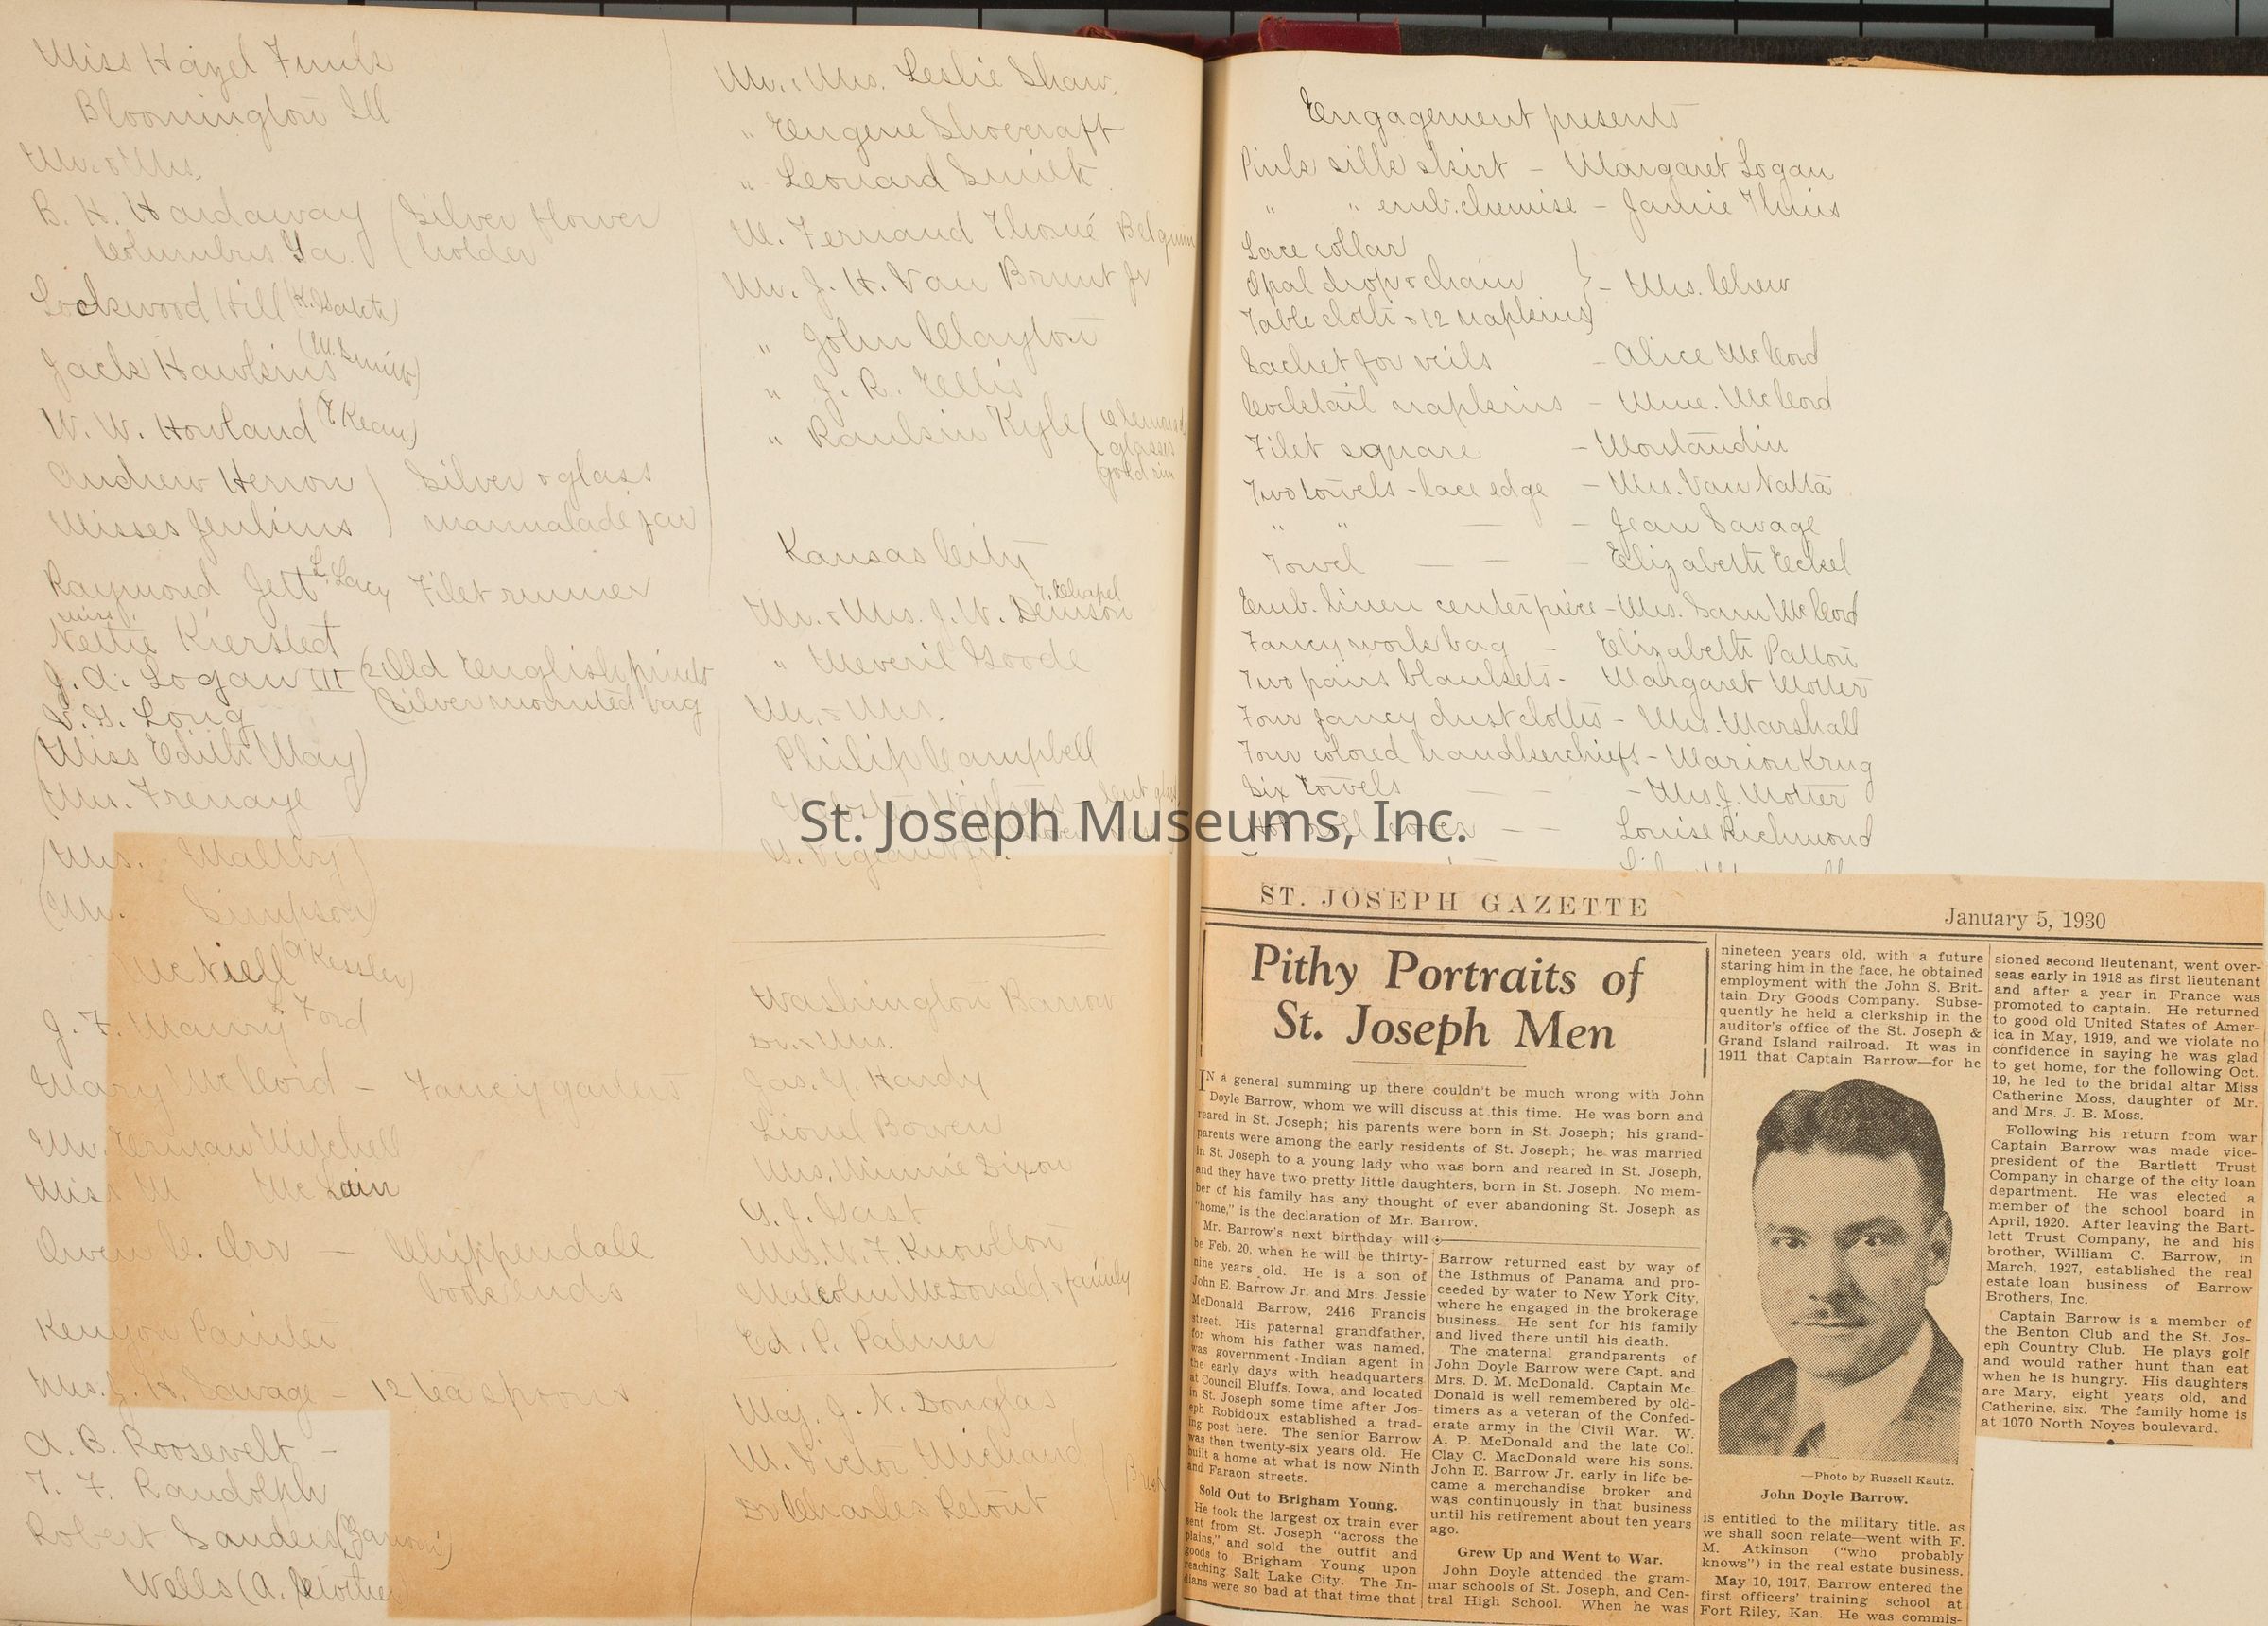 Miss Hazel Funk
Bloomington Ill
Mr. & Mrs.
B. H. Hardaway (Silver flower
Columbus Ga. ) (holder
Lockwood Hill
Jack Hawkins (M. Smith)
W. W. Howland (F. Kean)
Andrew Herron ) Silver & glass
Misses Jenkins ) marmalade jar
Raymond Jett L. Lacy Filet runner
Miss
Nettie Kiersted
J. A. Logan III (2 Old English prints
(Silver mounted bag
S. G. Long
(Miss Edith May)
(Mr. Frenaye
(Mrs. Maltby)
(Mr. Simpson)
McNiell (A Kessler)
J. F. Maury L Ford
Mary McCord - Fancy garters
Mr. Erman Mitchell
Miss M McLain
Owen C. Orr - Chippendale
book ends
Kenyon Painter
Mrs. J. H. Savage - 12 tea spoons
A. B. Roosevelt -
T. F. Randolph
Robert Sanders (Barrow)
Wells (A.
Mr. & Mrs. Leslie Shaw.
" Eugene Shoecraft
" Leonard Smith
M. Fernand Thomé Belgium
Mr. J. H. Van Brunt Jr
" John Clayton
" J. R. Ellis
" Rankin Kyle (
glasses
gold rim
Kansas City
F. Chapel
Mr. & Mrs. J. W. Denison
" Meveril Goode
Mr. & Mrs.
Philip Campbell
G. Pigeaut Jr.
Washington Barrow
Dr. & Mrs.
Jas. Y. Hardy
Lionel Bowen
Mrs. Minnie Dixon
G. J. Gast
Mrs. W. F. Knowlton
Malcolm McDonald & family
Ed. P. Palmer
Maj. J. N. Douglas
M. Victor Michaud
Dr Charles Petout
Engagement presents
Pink silk skirt - Margaret Logan
" " emb. chemise - Jamie Thuis
Lace collar
Opal drop & chain } - Mrs. Chew
Table cloth & 12 napkins
Sachet for veils - Alice McCord
Cocktail napkins - Mme. McCord
Filet square - Montaudin
Two towels - lace edge - Mrs. Van Natta
" " - - Jean Savage
Towel - - - Elizabeth Eckel
Emb. linen centerpiece - Mrs. Sam McCord
Fancy work bag - Elizabeth Patton
Two pairs blankets - Margaret Motter
Four fancy dust cloths - Mrs. Marshall
Four colored handkerchiefs - Marion Krug
Six towels - - - Mrs. J. Motter
cover - - Louise Richmond
St. Joseph Museums, Inc.
ST. JOSEPH GAZETTE
January 5, 1930
Pithy Portraits of
St. Joseph Men
IN a general summing up there couldn't be much wrong with John
Doyle Barrow, whom we will discuss at this time. He was born and
reared in St. Joseph; his parents were born in St. Joseph; his grand-
parents were among the early residents of St. Joseph; he was married
in St. Joseph to a young lady who was born and reared in St. Joseph,
and they have two pretty little daughters, born in St. Joseph. No mem-
ber of his family has any thought of ever abandoning St. Joseph as
"home," is the declaration of Mr. Barrow.
Mr. Barrow's next birthday will
be Feb. 20, when he will be thirty-
nine years old. He is a son of
John E. Barrow Jr. and Mrs. Jessie
McDonald Barrow, 2416 Francis
street. His paternal grandfather,
for whom his father was named,
was government Indian agent in
the early days with headquarters
at Council Bluffs, Iowa, and located
in St. Joseph some time after Jos-
eph Robidoux established a trad-
ing post here. The senior Barrow
was then twenty-six years old. He
built a home at what is now Ninth
and Faraon streets.
Sold Out to Brigham Young.
He took the largest ox train ever
sent from St. Joseph "across the
plains," and sold the outfit and
goods to Brigham Young upon
reaching Salt Lake City. The In-
dians were so bad at that time that
Barrow returned east by way of
the Isthmus of Panama and pro-
ceeded by water to New York City,
where he engaged in the brokerage
business. He sent for his family
and lived there until his death.
The maternal grandparents of
John Doyle Barrow were Capt. and
Mrs. D. M. McDonald. Captain Mc-
Donald is well remembered by old-
timers as a veteran of the Confed-
erate army in the Civil War. W.
A. P. McDonald and the late Col.
Clay C. MacDonald were his sons.
John E. Barrow Jr. early in life be-
came a merchandise broker and
was continuously in that business
until his retirement about ten years
ago.
Grew Up and Went to War.
John Doyle attended the gram-
mar schools of St. Joseph, and Cen-
tral High School. When he was
nineteen years old, with a future
staring him in the face, he obtained
employment with the John S. Brit-
tain Dry Goods Company. Subse-
quently he held a clerkship in the
auditor's office of the St. Joseph &
Grand Island railroad. It was in
1911 that Captain Barrow—for he
—Photo by Russell Kautz.
John Doyle Barrow.
is entitled to the military title, as
we shall soon relate—went with F.
M. Atkinson ("who probably
knows") in the real estate business.
May 10, 1917, Barrow entered the
first officers' training school at
Fort Riley, Kan. He was commis-
sioned second lieutenant, went over-
seas early in 1918 as first lieutenant
and after a year in France was
promoted to captain. He returned
to good old United States of Amer-
ica in May, 1919, and we violate no
confidence in saying he was glad
to get home, for the following Oct.
19, he led to the bridal altar Miss
Catherine Moss, daughter of Mr.
and Mrs. J. B. Moss.
Following his return from war
Captain Barrow was made vice-
president of the Bartlett Trust
Company in charge of the city loan
department. He was elected a
member of the school board in
April, 1920. After leaving the Bart-
lett Trust Company, he and his
brother, William C. Barrow, in
March, 1927, established the real
estate loan business of Barrow
Brothers, Inc.
Captain Barrow is a member of
the Benton Club and the St. Jos-
eph Country Club. He plays golf
and would rather hunt than eat
when he is hungry. His daughters
are Mary, eight years old, and
Catherine, six. The family home is
at 1070 North Noyes boulevard.